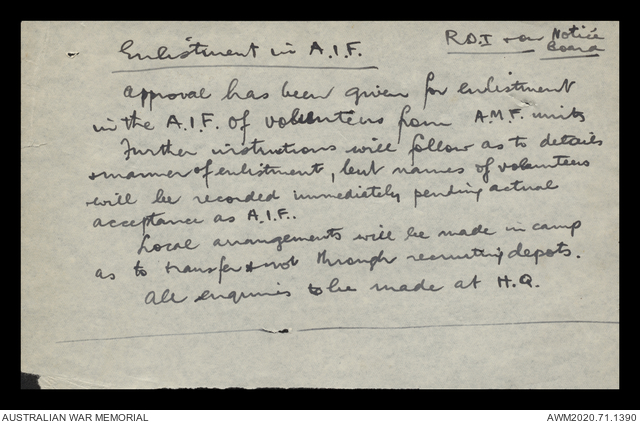 R.O.I + on Notice
Board
Enlistment in A.I.F.
Approval has been given for enlistment
in the A.I.F. of volunteers from A.M.F. units
Further instructions will follow as to details
+ manner of enlistment, but names of volunteers
will be recorded immediately pending actual
acceptance as A.I.F..
Local arrangements will be made in camp
as to transfer + not through recruiting depots.
All enquiries to be made at H.Q.
AUSTRALIAN WAR MEMORIAL
AWM2020.71.1390